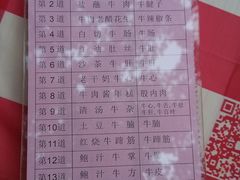 第2道 盐 焗 牛 肉 牛腱子
第3道 牛肉老醋花生 牛辣椒条
第4道 白 切 牛 肠 牛肠
第5道 卤 油 肚 丝 牛肚
第6道 沙 茶 牛 肝 牛肝
第7道 老 干 妈 牛 心 牛心
第8道 牛 肉 酱 年 糕 股内肉
第9道 清 汤 牛 杂
第10道 土 豆 牛 腩 牛腩
第11道 红 烧 牛 蹄 筋 牛蹄筋
第12道 鲍 汁 牛 掌
第13道 鲍 汁 牛 方 牛皮